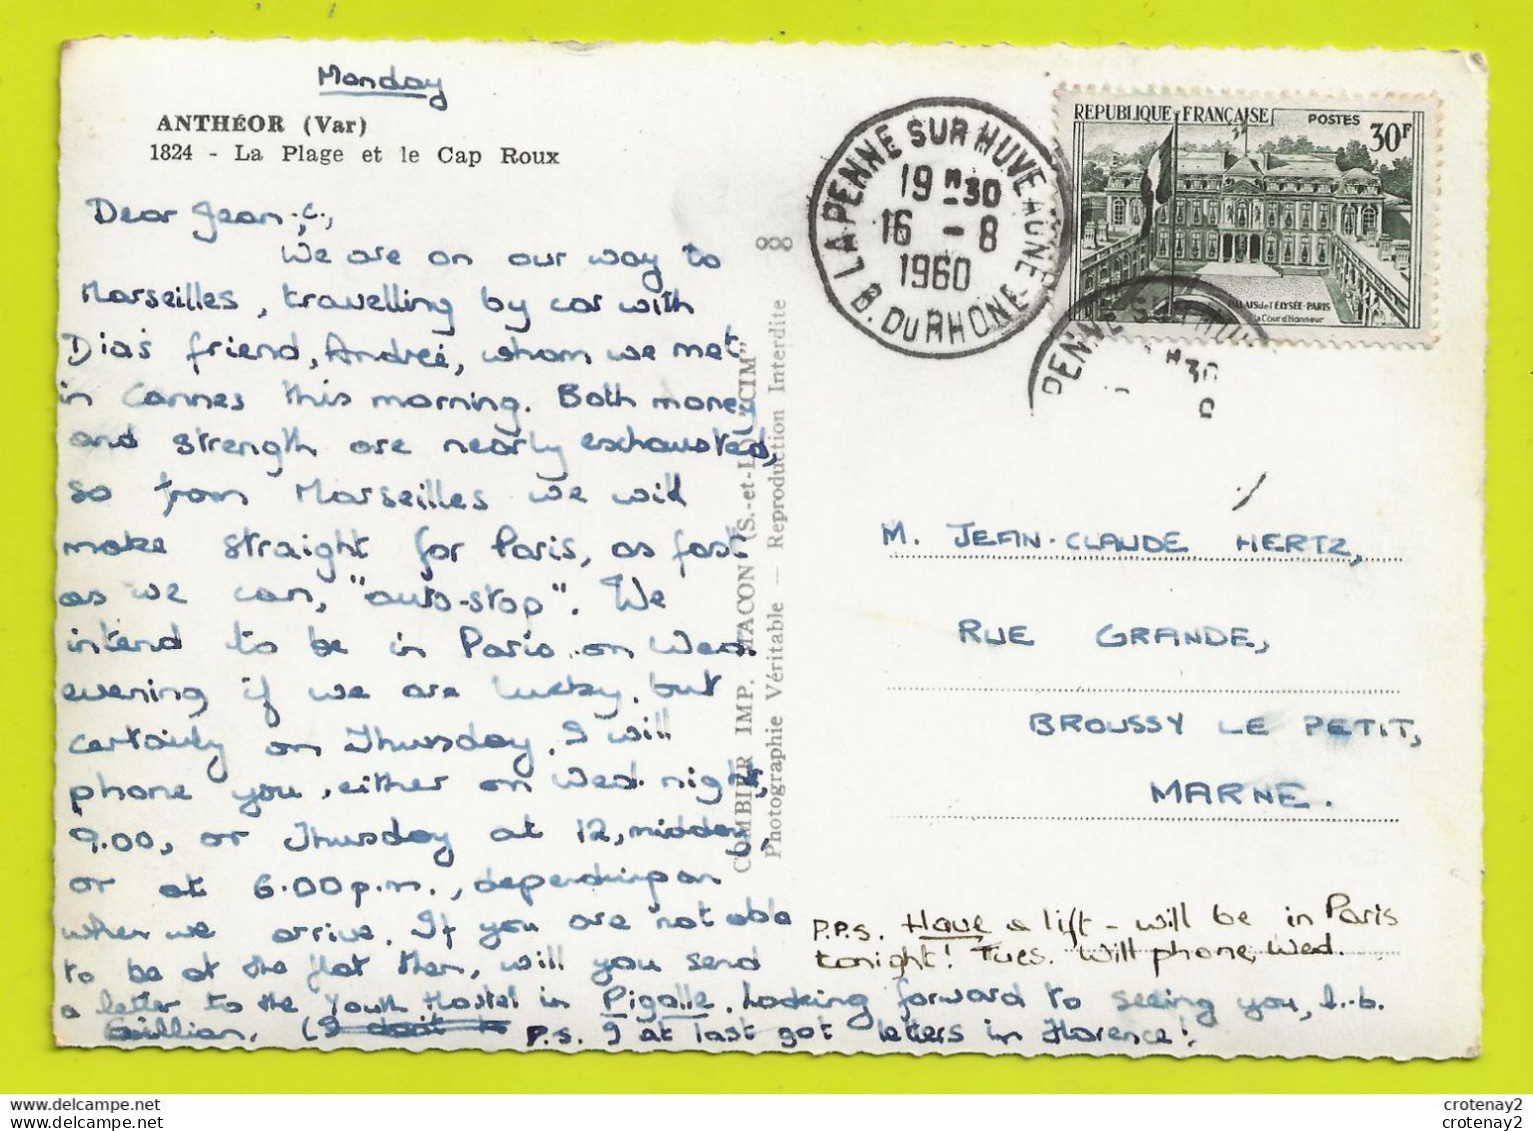 Monday
ANTHÉOR (Var)
1824 - La Plage et le Cap Roux
Dear Jean-C.,
We are on our way to
Marseilles, travelling by car with
Dia's friend, Andreé, whom we met
in Cannes this morning. Both money
and strength are nearly exhausted,
so from Marseilles we will
make straight for Paris, as fast
as we can, "auto-stop". We
intend to be in Paris on Wed.
evening if we are lucky, but
certainly on Thursday. I will
phone you, either on Wed. night,
9.00, or Thursday at 12, midday,
or at 6.00 p.m., depending on
when we arrive. If you are not able
to be at the flat then, will you send
a letter to the Youth Hostel in Pigalle. Looking forward to seeing you, l..b.
Gillian. (I don't P.S. I at last got letters in Florence!
COMBIER IMP. MACON (S.-et-L.) "CIM"
Photographie Véritable — Reproduction Interdite
LA PENNE SUR HUVEAUNE
19 H 30
16 - 8
1960
B. DU RHONE
REPUBLIQUE FRANÇAISE
POSTES
30F
PALAIS de l'ELYSÉE-PARIS
la Cour d'Honneur
PENNE SUR HUV
H 30
8
M. JEAN-CLAUDE HERTZ,
RUE GRANDE,
BROUSSY LE PETIT,
MARNE.
P.P.S. Have a lift - will be in Paris
tonight! Tues. Will phone, Wed.
crotenay2
crotenay2